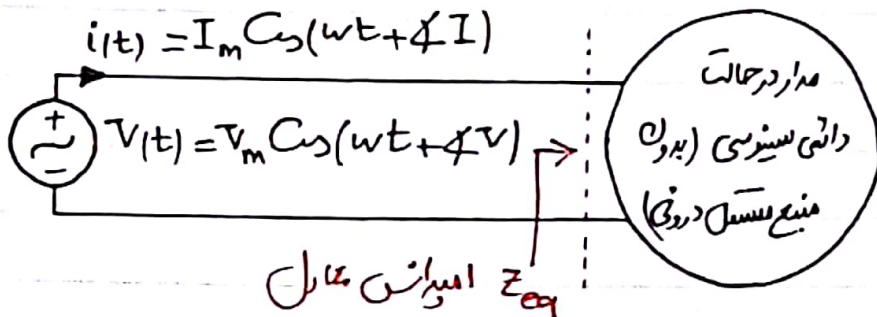 i(t) = I_m Cos(wt + ∡I)
V(t) = V_m Cos(wt + ∡V)
مدار در حالت
دائمی سینوسی (بدون
منبع مستقل درونی)
Z_eq امپدانس معادل
+
−